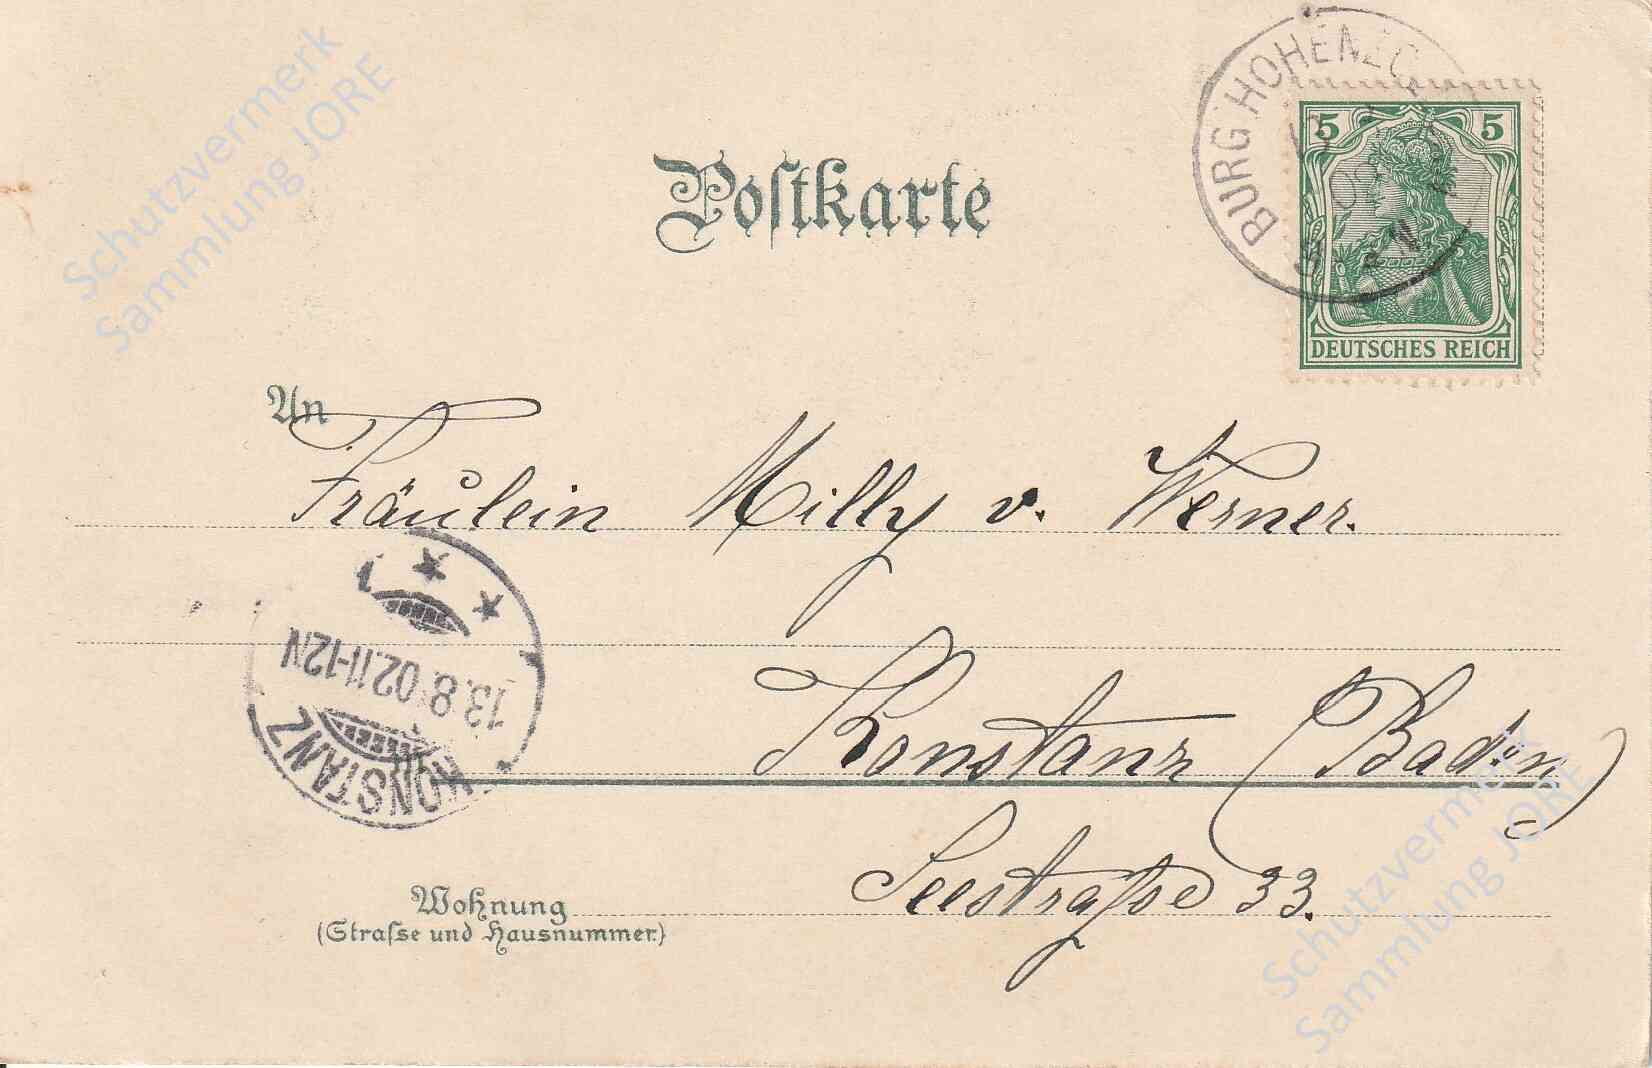 Schutzvermerk
Sammlung JORE
BURG HOHENZO
5 5
DEUTSCHES REICH
Postkarte
An
Fräulein Milly v. Werner.
13.8.02.11-12N
KONSTANZ
Konstanz (Baden)
Seestraſse 33.
Wohnung
(Straſse und Hausnummer.)
Schutzvermerk
Sammlung JORE